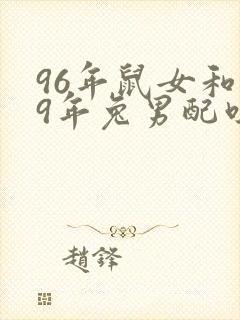 96年鼠女和
9年兔男配
趙鋒